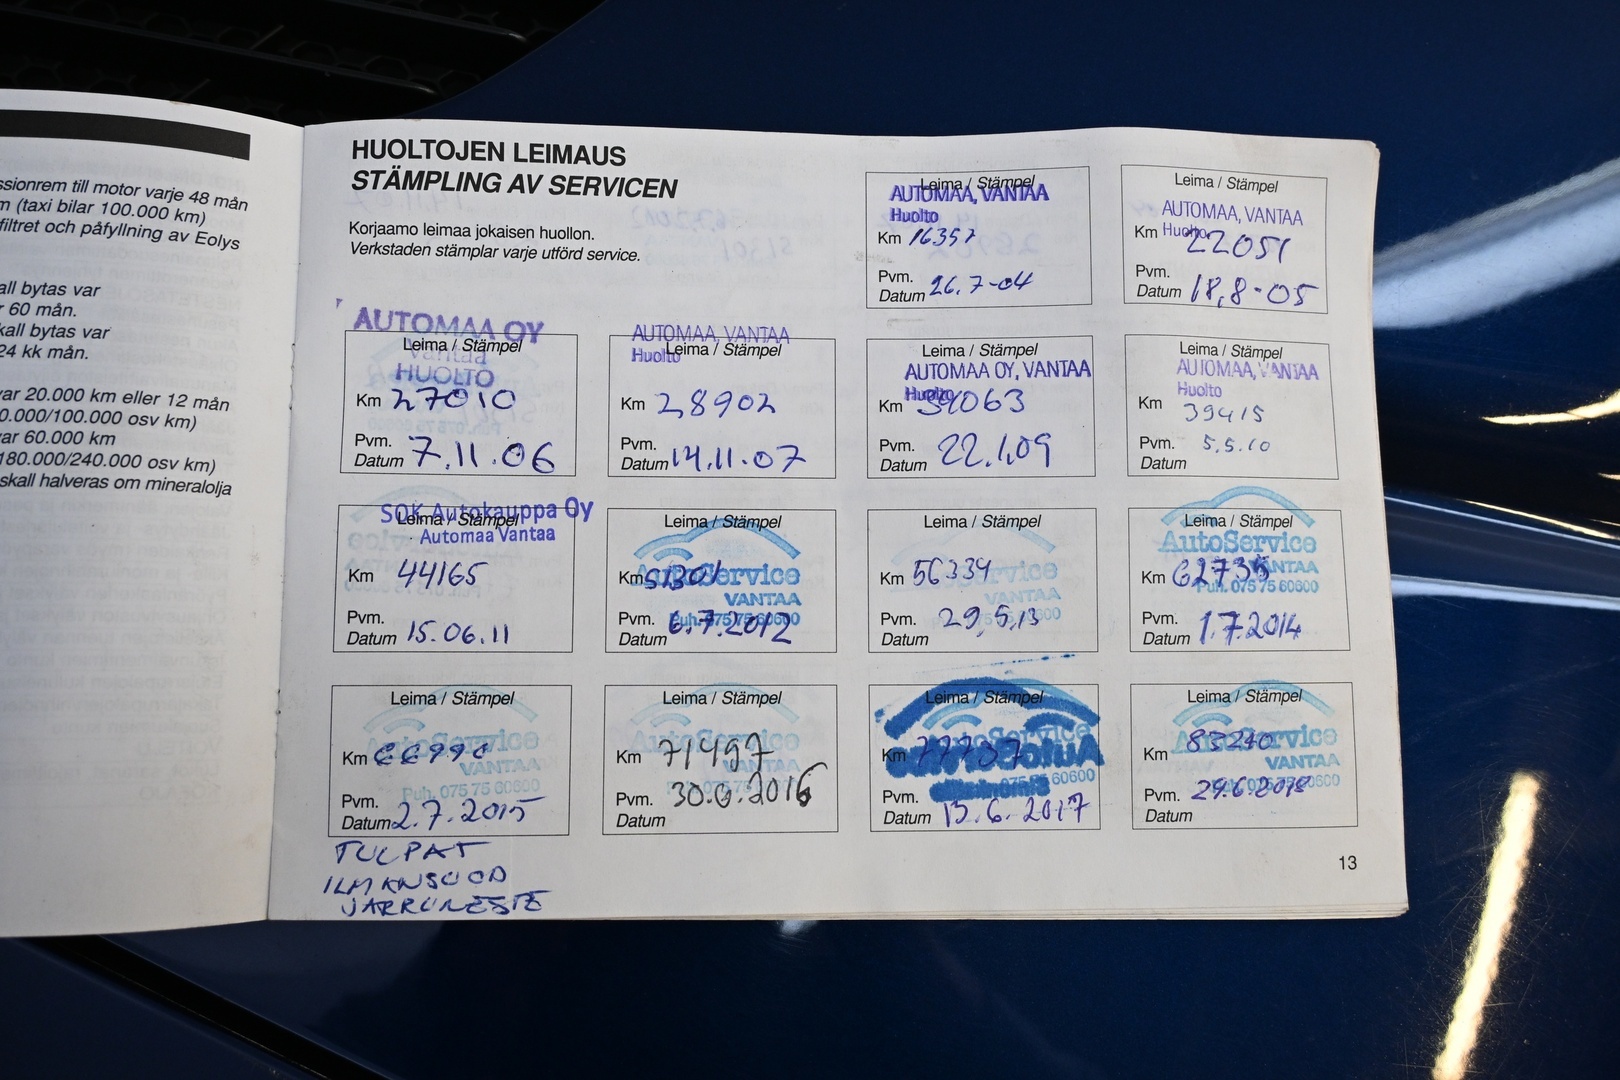 ssionrem till motor varje 48 mån
m (taxi bilar 100.000 km)
filtret och påfyllning av Eolys
all bytas var
r 60 mån.
kall bytas var
24 kk mån.
var 20.000 km eller 12 mån
0.000/100.000 osv km)
var 60.000 km
180.000/240.000 osv km)
skall halveras om mineralolja
HUOLTOJEN LEIMAUS
STÄMPLING AV SERVICEN
Korjaamo leimaa jokaisen huollon.
Verkstaden stämplar varje utförd service.
Leima / Stämpel
AUTOMAA, VANTAA
Huolto
Km 16357
Pvm.
Datum 26.7-04
Leima / Stämpel
AUTOMAA, VANTAA
Huolto
Km 22051
Pvm.
Datum 18,8-05
AUTOMAA OY
Leima / Stämpel
Vantaa
HUOLTO
Km 27010
Pvm.
Datum 7.11.06
AUTOMAA, VANTAA
Leima / Stämpel
Huolto
Km 28902
Pvm.
Datum 14.11.07
Leima / Stämpel
AUTOMAA OY, VANTAA
Huolto
Km 34063
Pvm.
Datum 22.1.09
Leima / Stämpel
AUTOMAA, VANTAA
Huolto
Km 39415
Pvm. 5.5.10
Datum
SOK Autokauppa Oy
Leima / Stämpel
Automaa Vantaa
Km 44165
Pvm.
Datum 15.06.11
Leima / Stämpel
AutoService
Km 51301
VANTAA
Pvm. Puh. 075 75 60600
Datum 6.7.2012
Leima / Stämpel
AutoService
Km 56334
VANTAA
Pvm. 29,5,13
Datum
Leima / Stämpel
AutoService
VANTAA
Km 62735
Puh. 075 75 60600
Pvm.
Datum 1.7.2014
Leima / Stämpel
AutoService
Km 66996
VANTAA
Puh. 075 75 60600
Pvm.
Datum 2.7.2015
Leima / Stämpel
AutoService
Km 71497
VANTAA
Pvm. 30.6.2016
Datum
Leima / Stämpel
Km 77737
075 75 60600
Pvm.
Datum 13.6.2017
Leima / Stämpel
AutoService
Km 83240
VANTAA
Puh. 075 75 60600
Pvm. 29.6.2018
Datum
TULPAT
ILMANSUOD
JARRUNESTE
13